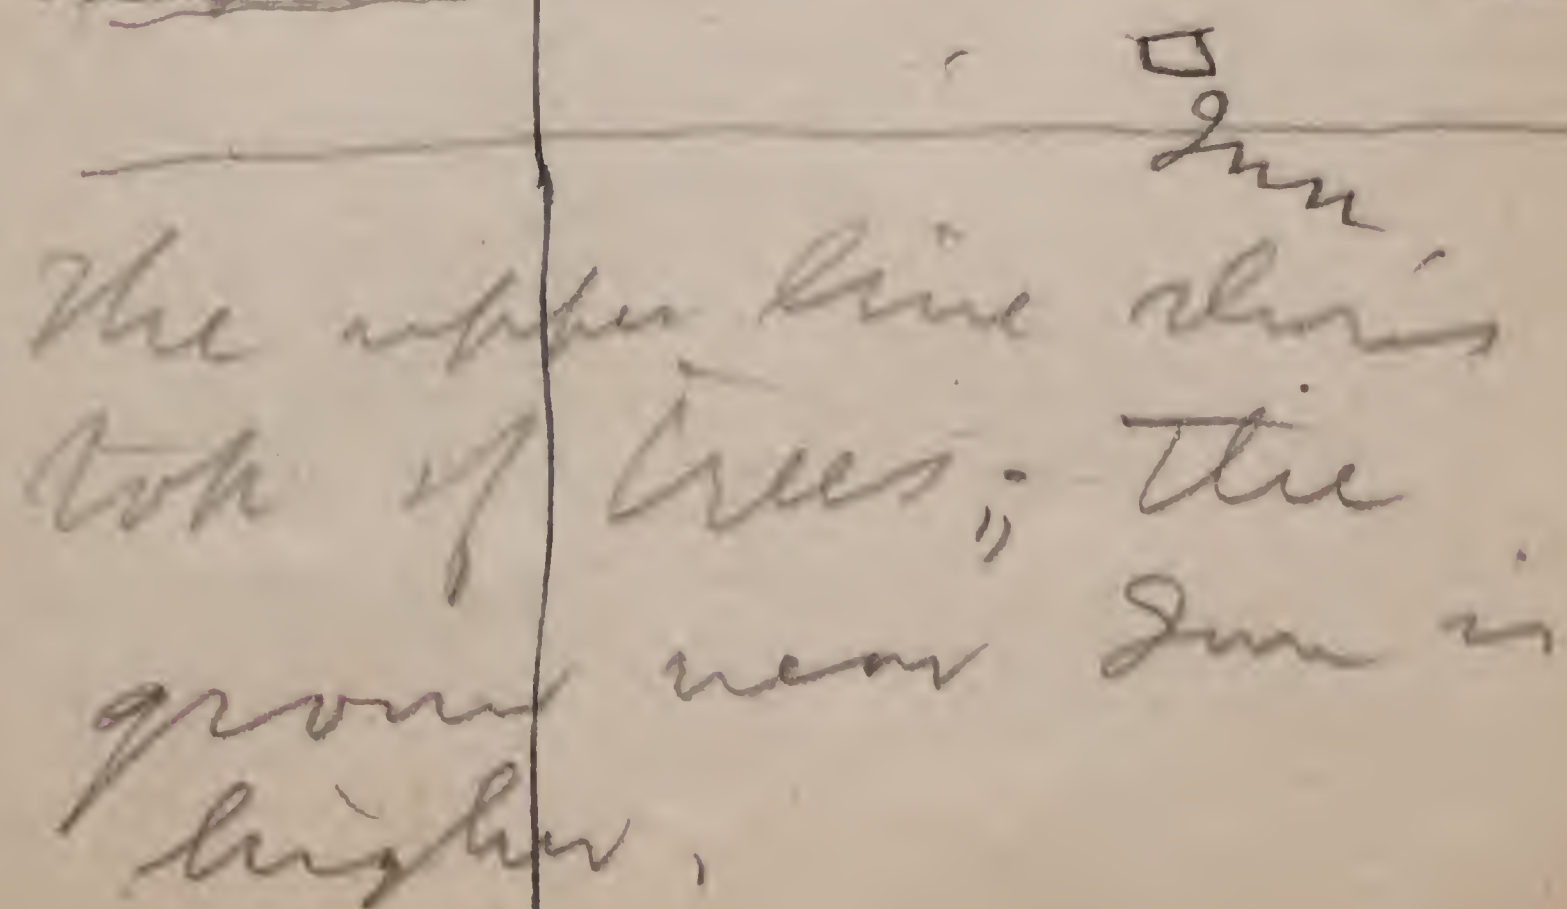 Inn
The upper line shows
top of trees; the
ground near Inn is
higher.